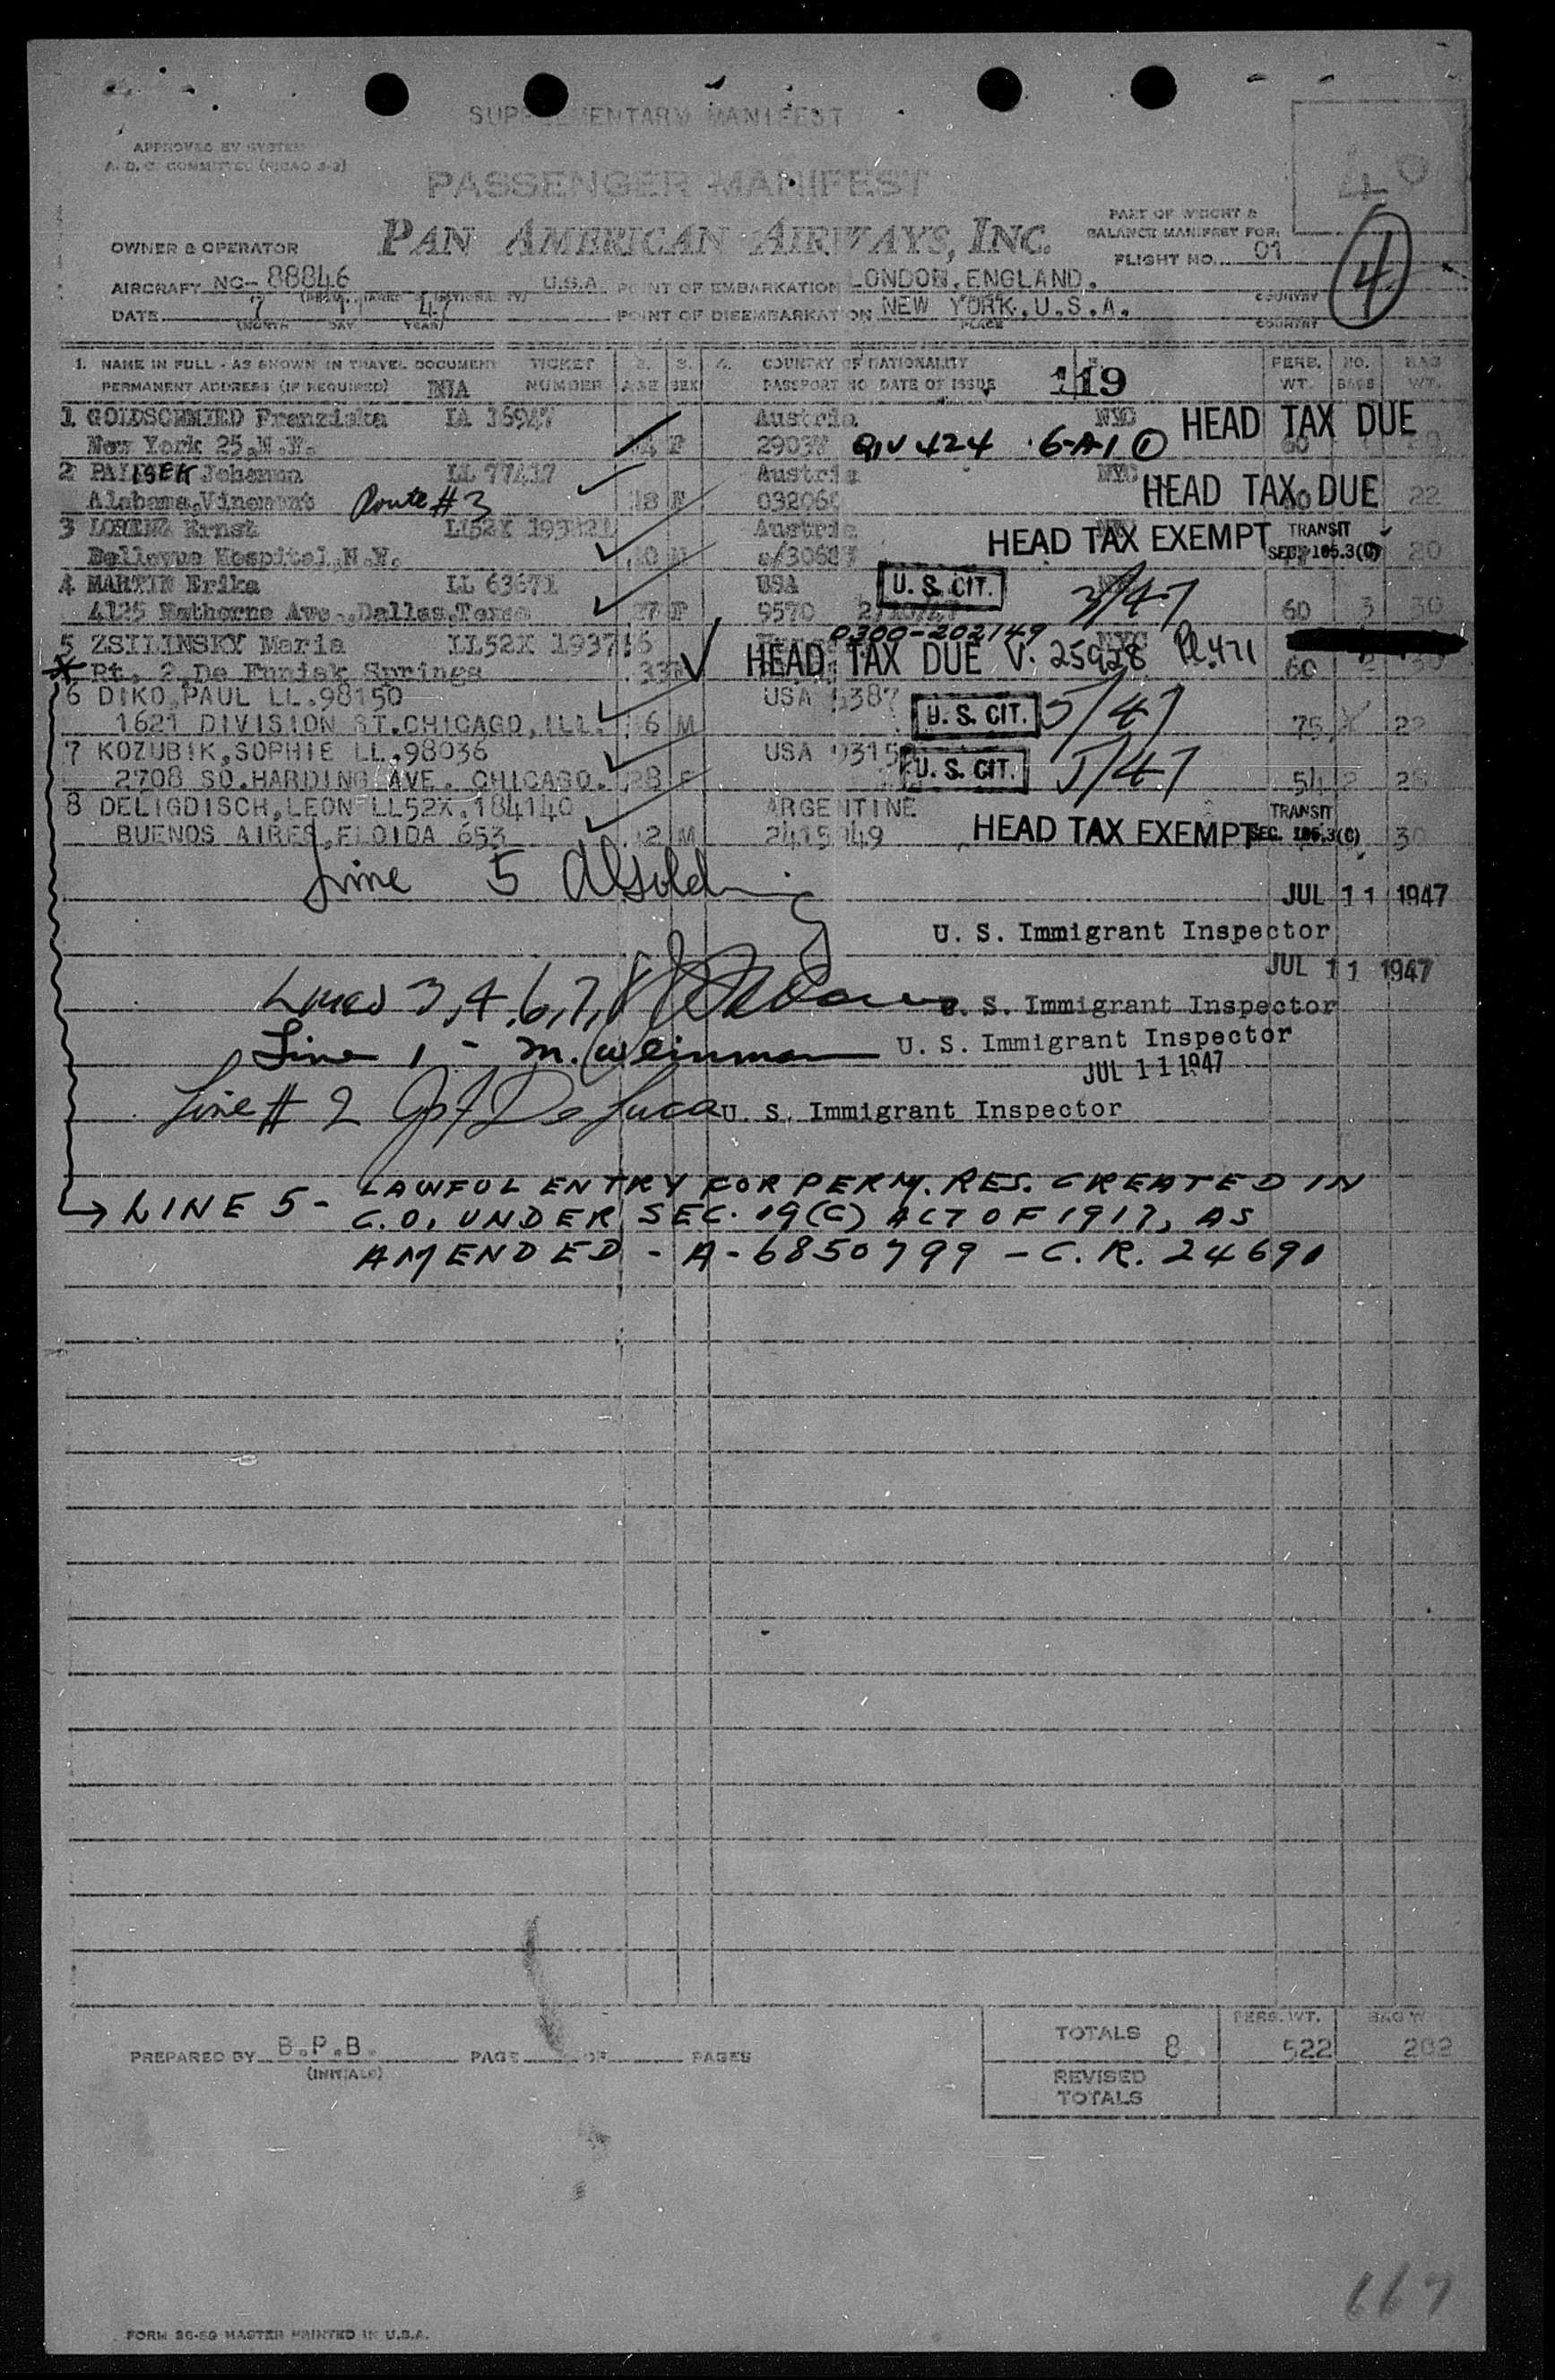 SUPPLEMENTARY MANIFEST
APPROVED BY SYSTEM
A. D. C. COMMITTEE (PICAO 2-2)
PASSENGER MANIFEST
40
PAN AMERICAN AIRWAYS, INC.
PART OF WEIGHT &
BALANCE MANIFEST FOR:
OWNER & OPERATOR
FLIGHT NO. 01
4
AIRCRAFT NC-88846 U.S.A. POINT OF EMBARKATION LONDON, ENGLAND. COUNTRY
DATE 7 47 POINT OF DISEMBARKATION NEW YORK, U.S.A.
(MONTH DAY YEAR) PLACE COUNTRY
1. NAME IN FULL - AS SHOWN IN TRAVEL DOCUMENT TICKET 2. 3. 4. COUNTRY OF NATIONALITY PERS. NO. BAG
PERMANENT ADDRESS (IF REQUIRED) NUMBER AGE SEX PASSPORT NO DATE OF ISSUE 119 WT. BAGS WT.
1 GOLDSCHMIED Franziska IA 16947 Austria NYC HEAD TAX DUE
New York 25, N.Y. F 2903 QIV 424 6-A-1 ① 60
2 Johanna LL 77417 Austria NYC HEAD TAX DUE
Alabama, Vinemont Route #3 18 F 03206 22
3 LORENZ Ernst LL52X 193421 Austria HEAD TAX EXEMPT TRANSIT
Bellevue Hospital, N.Y. M HEAD TAX EXEMPT SEC. 105.3(C) 20
4 MARTIN Erika LL 63671 USA U. S. CIT. 3/47
4125 Hathorne Ave., Dallas, Texas F 9570 60 3 30
5 ZSILINSKY Maria LL52X 1937 6 0300-202149 NYC
Rt. 2, De Funiak Springs 33 F HEAD TAX DUE V. 25928 Pl. 471 60 2 30
6 DIKO, PAUL LL.98150 USA 387 U. S. CIT. 5/47
1621 DIVISION ST. CHICAGO, ILL. 6 M 75 22
7 KOZUBIK, SOPHIE LL.98036 USA 9315 U. S. CIT. 5/47
2708 SO. HARDING AVE. CHICAGO. 28 F 54 2 28
8 DELIGDISCH, LEON LL52X.184140 ARGENTINE TRANSIT
BUENOS AIRES, FLOIDA 653 2 M 2415949 HEAD TAX EXEMPT SEC. 105.3(C) 30
Line 5
JUL 11 1947
U. S. Immigrant Inspector
JUL 11 1947
Lines 3, 4, 6, 7, 8 U. S. Immigrant Inspector
Line 1 - M. Weinman U. S. Immigrant Inspector
JUL 11 1947
Line # 2 Jos F De Luca U. S. Immigrant Inspector
→ LINE 5 - LAWFUL ENTRY FOR PERM. RES. CREATED IN
C.O. UNDER SEC. 19(C) ACT OF 1917, AS
AMENDED - A-6850799 - C.R. 24690
PREPARED BY B.P.B. PAGE OF PAGES
(INITIALS)
TOTALS 8 PERS. WT. 522 BAG WT. 202
REVISED
TOTALS
667
FORM 36-59 MASTER PRINTED IN U.S.A.